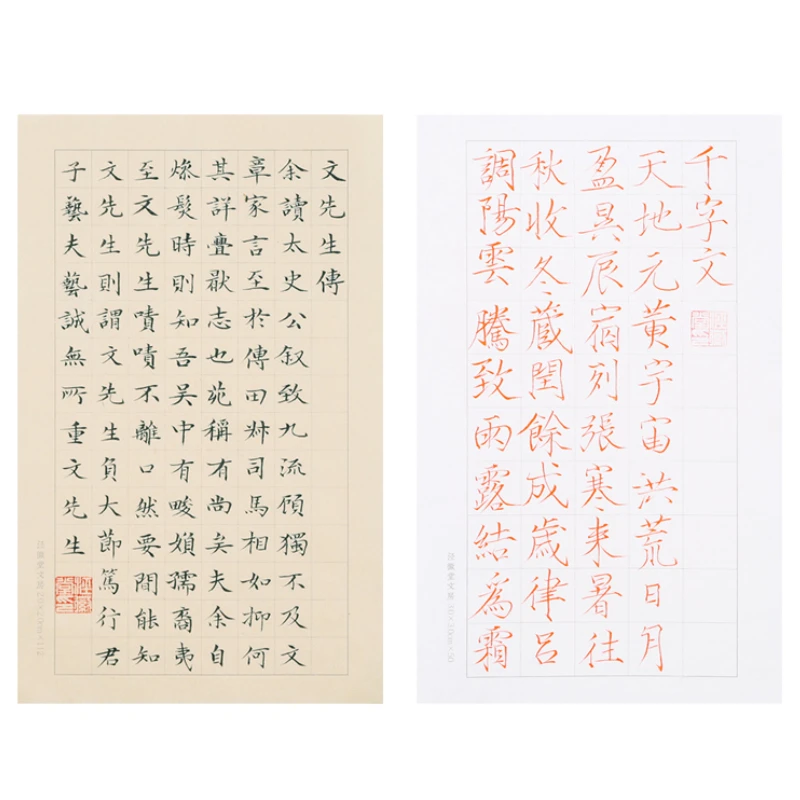 文先生傳
余讀太史公叙致九流顧獨不及文
章家言至於傳田叔司馬相如抑何
其詳疊猒志也苑稱有尚矣夫余自
燥髮時則知吾吳中有畯嬾孺裔夷
至文先生嘖嘖不離口然要間能知
文先生則謂文先生負大節篤行君
子藝夫藝誠無所重文先生
千字文
天地元黃宇宙洪荒日月
盈昃辰宿列張寒來暑往
秋收冬藏閏餘成歲律呂
調陽雲騰致雨露結為霜